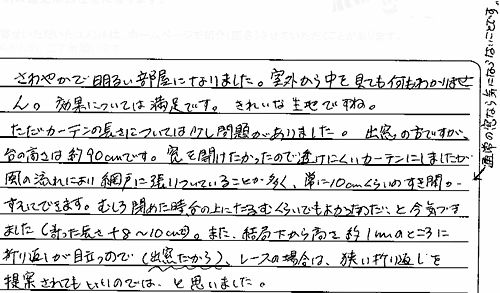 さわやかで明るい部屋になりました。室外から中を見ても何もわかりませ
ん。効果については満足です。きれいな生地ですね。
ただカーテンの長さについては少し問題がありました。出窓の方ですが、
台の高さは約90cmです。窓を開けたかったので透けにくいカーテンにしましたが
風の流れにより網戸に張りついていることが多く、常に10cmくらいのすき間が
すいてできます。むしろ閉めた時台の上にたるむくらいでもよかったかと今気づき
ました（寄った長さ+8〜10cm）。また、結局下から高さ約1cmのところに
折り返しが目立つので（出窓だから）、レースの場合は、狭い折り返しを
提案されてもいいのでは、と思いました。
通常の窓なら気にならないことです。